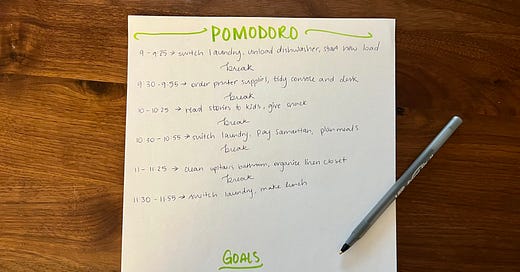 POMODORO
9-9:25 → switch laundry, unload dishwasher, start new load
break
9:30-9:55 → order printer supplies, tidy console and desk
break
10-10:25 → read stories to kids, give snack
break
10:30-10:55 → switch laundry, Pay Samantan, plan meals
break
11-11:25 → clean upstairs bathroom, organize linen closet
break
11:30-11:55 → switch laundry, make lunch
GOALS